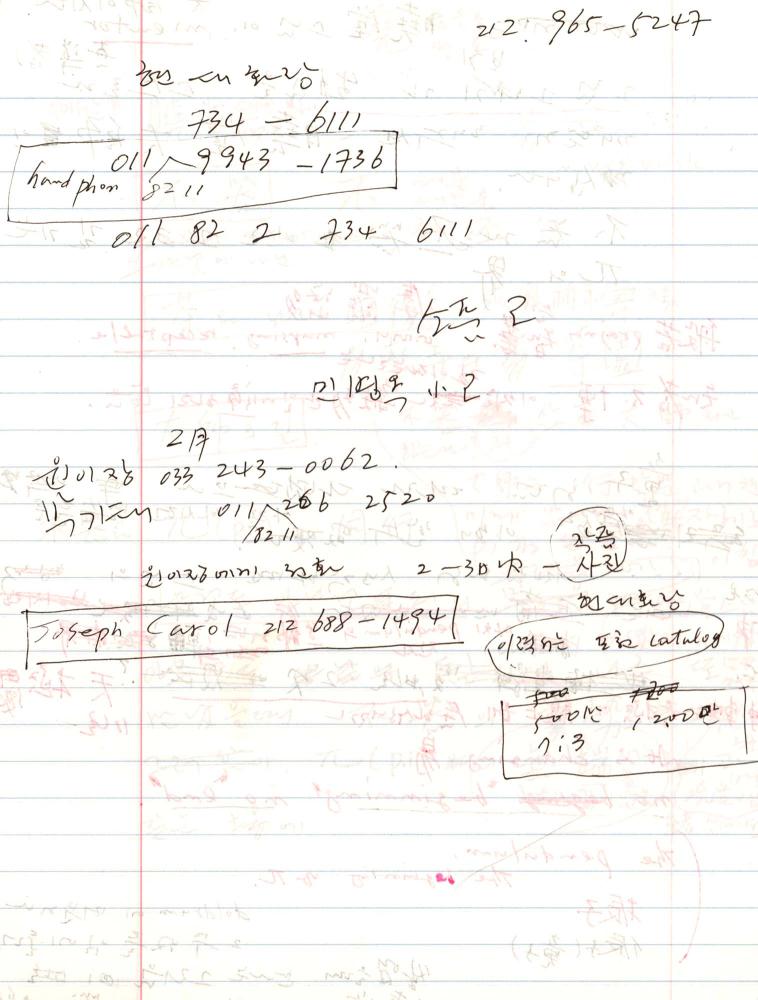 212. 965-5247
현대화랑
734 - 6111
011 9943 - 1736
hand phon 82 11
011 82 2 734 6111
소품 2
민병옥 小 2
2月
원이장 033 243-0062.
박기태 011 206 2520
82 11
원이장에게 전화 2-30 - 작품
사진
현대화랑
Joseph Carol 212 688-1494
이력서는 포함 catalog
500 1200
500만 1,200만
7:3